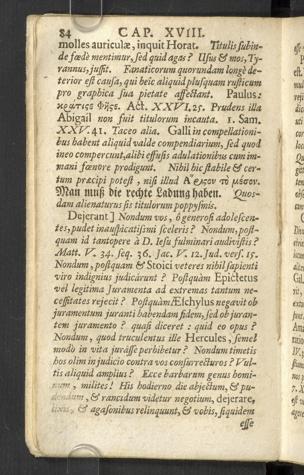 84 CAP. XVIII.
molles auriculæ, inquit Horat. Titulis subin-
de fœdè mentimur, sed quid agas? Usus & mos, Ty-
rannus, jussit. Fanaticorum quorundam longè de-
terior est causa, qui heic aliquid plusquam rusticum
pro graphica sua pietate affectant. Paulus:
κράτιςε Φῆςε. Act. XXVI. 25. Prudens illa
Abigail non fuit titulorum incauta. 1. Sam.
XXV. 41. Taceo alia. Galli in compellationi-
bus habent aliquid valde compendiarium, sed quod
ineo compercunt, alibi effusis adulationibus cum im-
mani fœnore produgunt. Nihil hic stabile & cer-
tum præcipi potest, nisi illud Ἄελςον τὸ μέσον.
Man muß die rechte Ladung haben. Quos-
dam alienaturus sis titulorum poppysmis.
Dejerant] Nondum vos, ô generosi adolescen-
tes, pudet inauspicatissimi sceleris? Nondum, post-
quam id tantopere à D. Jesu fulminari audivistis?
Matt. V. 34. seq. 36. Jac. V. 12. Jud. vers. 15.
Nondum, postquam & Stoici veteres nihil sapienti
viro indignius judicârunt? Postquàm Epictetus
vel legitima Juramenta ad extremas tantum ne-
cessitates rejecit? Postquàm Æschylus negavit ob
juramentum juranti habendam fidem, sed ob juran-
tem juramento? quasi diceret: quid eo opus?
Nondum, quod truculentus ille Hercules, semel
modò in vita jurâsse perhibetur? Nondum timetis
hos olim in judicio contra vos consurrecturos? Vul-
tis aliquid amplius? Ecce barbarum genus homi-
num, milites! His hodierno die abjectum, & pu-
dendum, & rancidum videtur negotium, dejerare,
lixis, & agasonibus relinquunt, & vobis, siquidem
esse